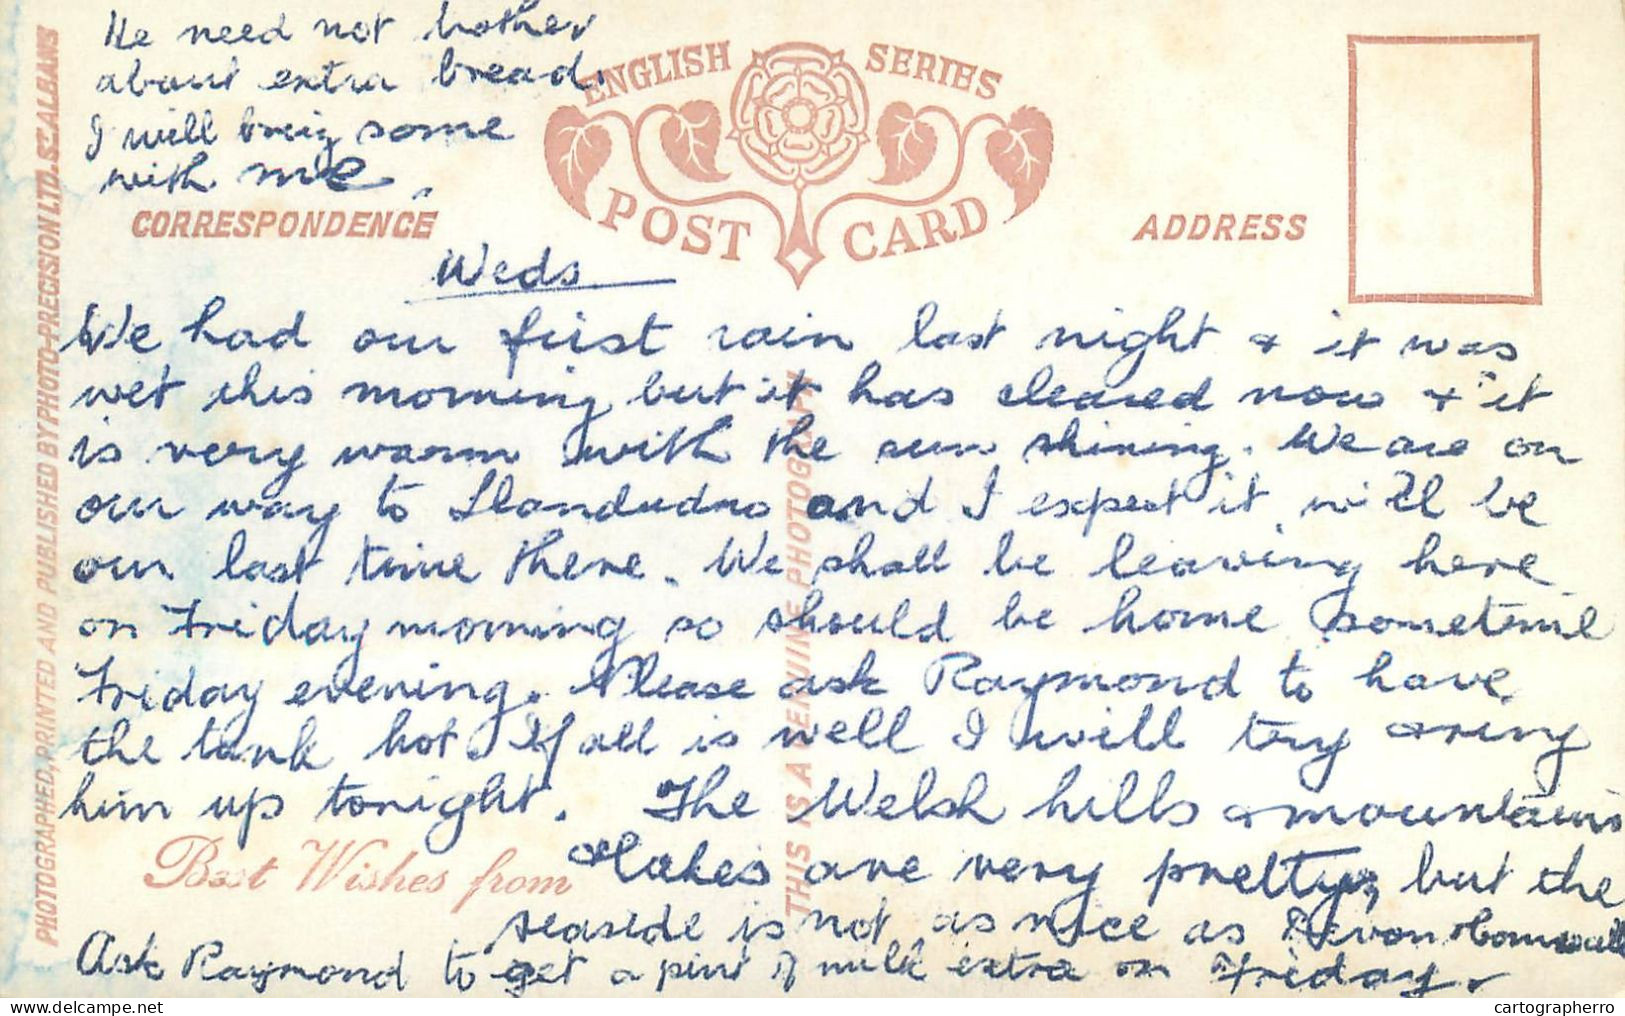 He need not bother
about extra bread.
I will bring some
with me.
ENGLISH SERIES
POST CARD
CORRESPONDENCE
ADDRESS
Weds
We had our first rain last night & it was
wet this morning but it has cleared now & it
is very warm with the sun shining. We are on
our way to Llandudno and I expect it will be
our last time there. We shall be leaving here
on Friday morning so should be home sometime
Friday evening. Please ask Raymond to have
the tank hot. If all is well I will try & ring
him up tonight. The Welsh hills & mountains
& lakes are very pretty, but the
seaside is not as nice as Devon & Cornwall
Best Wishes from
Ask Raymond to get a pint of milk extra on Friday.
PHOTOGRAPHED, PRINTED AND PUBLISHED BY PHOTO-PRECISION LTD. ST. ALBANS
THIS IS A GENUINE PHOTOGRAPH
cartographerro